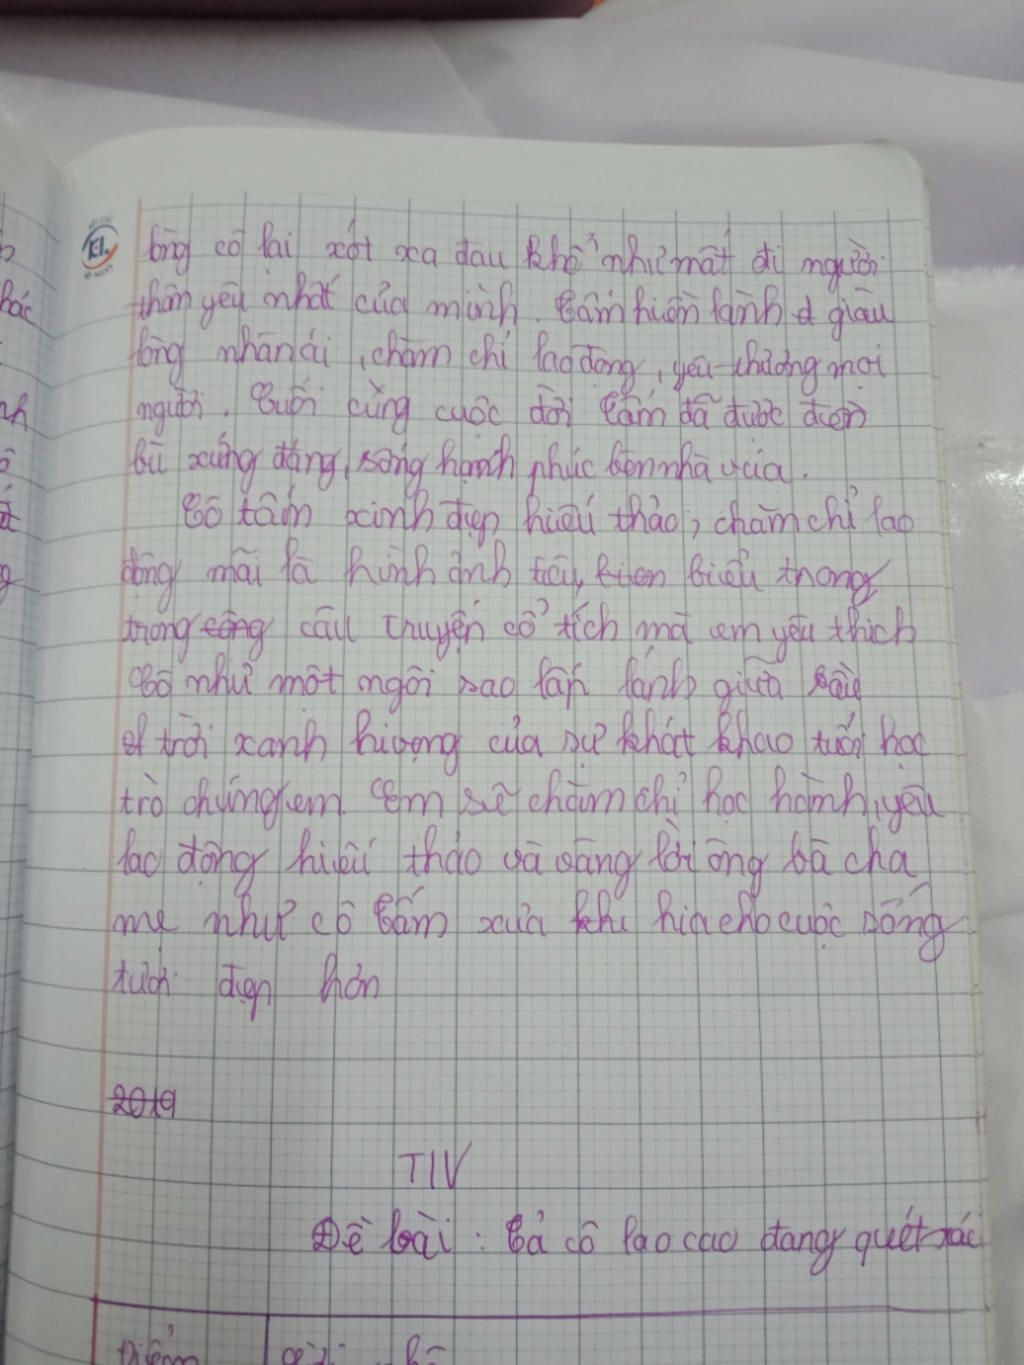 lòng cô lại xót xa đau khổ như mất đi người
thân yêu nhất của mình. Tấm hiền lành giàu
lòng nhân ái, chăm chỉ lao động, yêu thương mọi
người. Cuối cùng cuộc đời Tấm đã được đền
bù xứng đáng, sống hạnh phúc bên nhà vua.
Cô tấm xinh đẹp, hiếu thảo, chăm chỉ lao
động mãi là hình ảnh tiêu biểu trong
trong câu truyện cổ tích mà em yêu thích
Cô như một ngôi sao lấp lánh giữa bầu
trời xanh hi vọng của sự khát khao tuổi học
trò chúng em. Em sẽ chăm chỉ học hành, yêu
lao động hiếu thảo và vâng lời ông bà cha
mẹ như cô Tấm xưa khi kia cho cuộc sống
tươi đẹp hơn
2019
TLV
Đề bài: Tả cô lao cao đang quét rác
Điểm